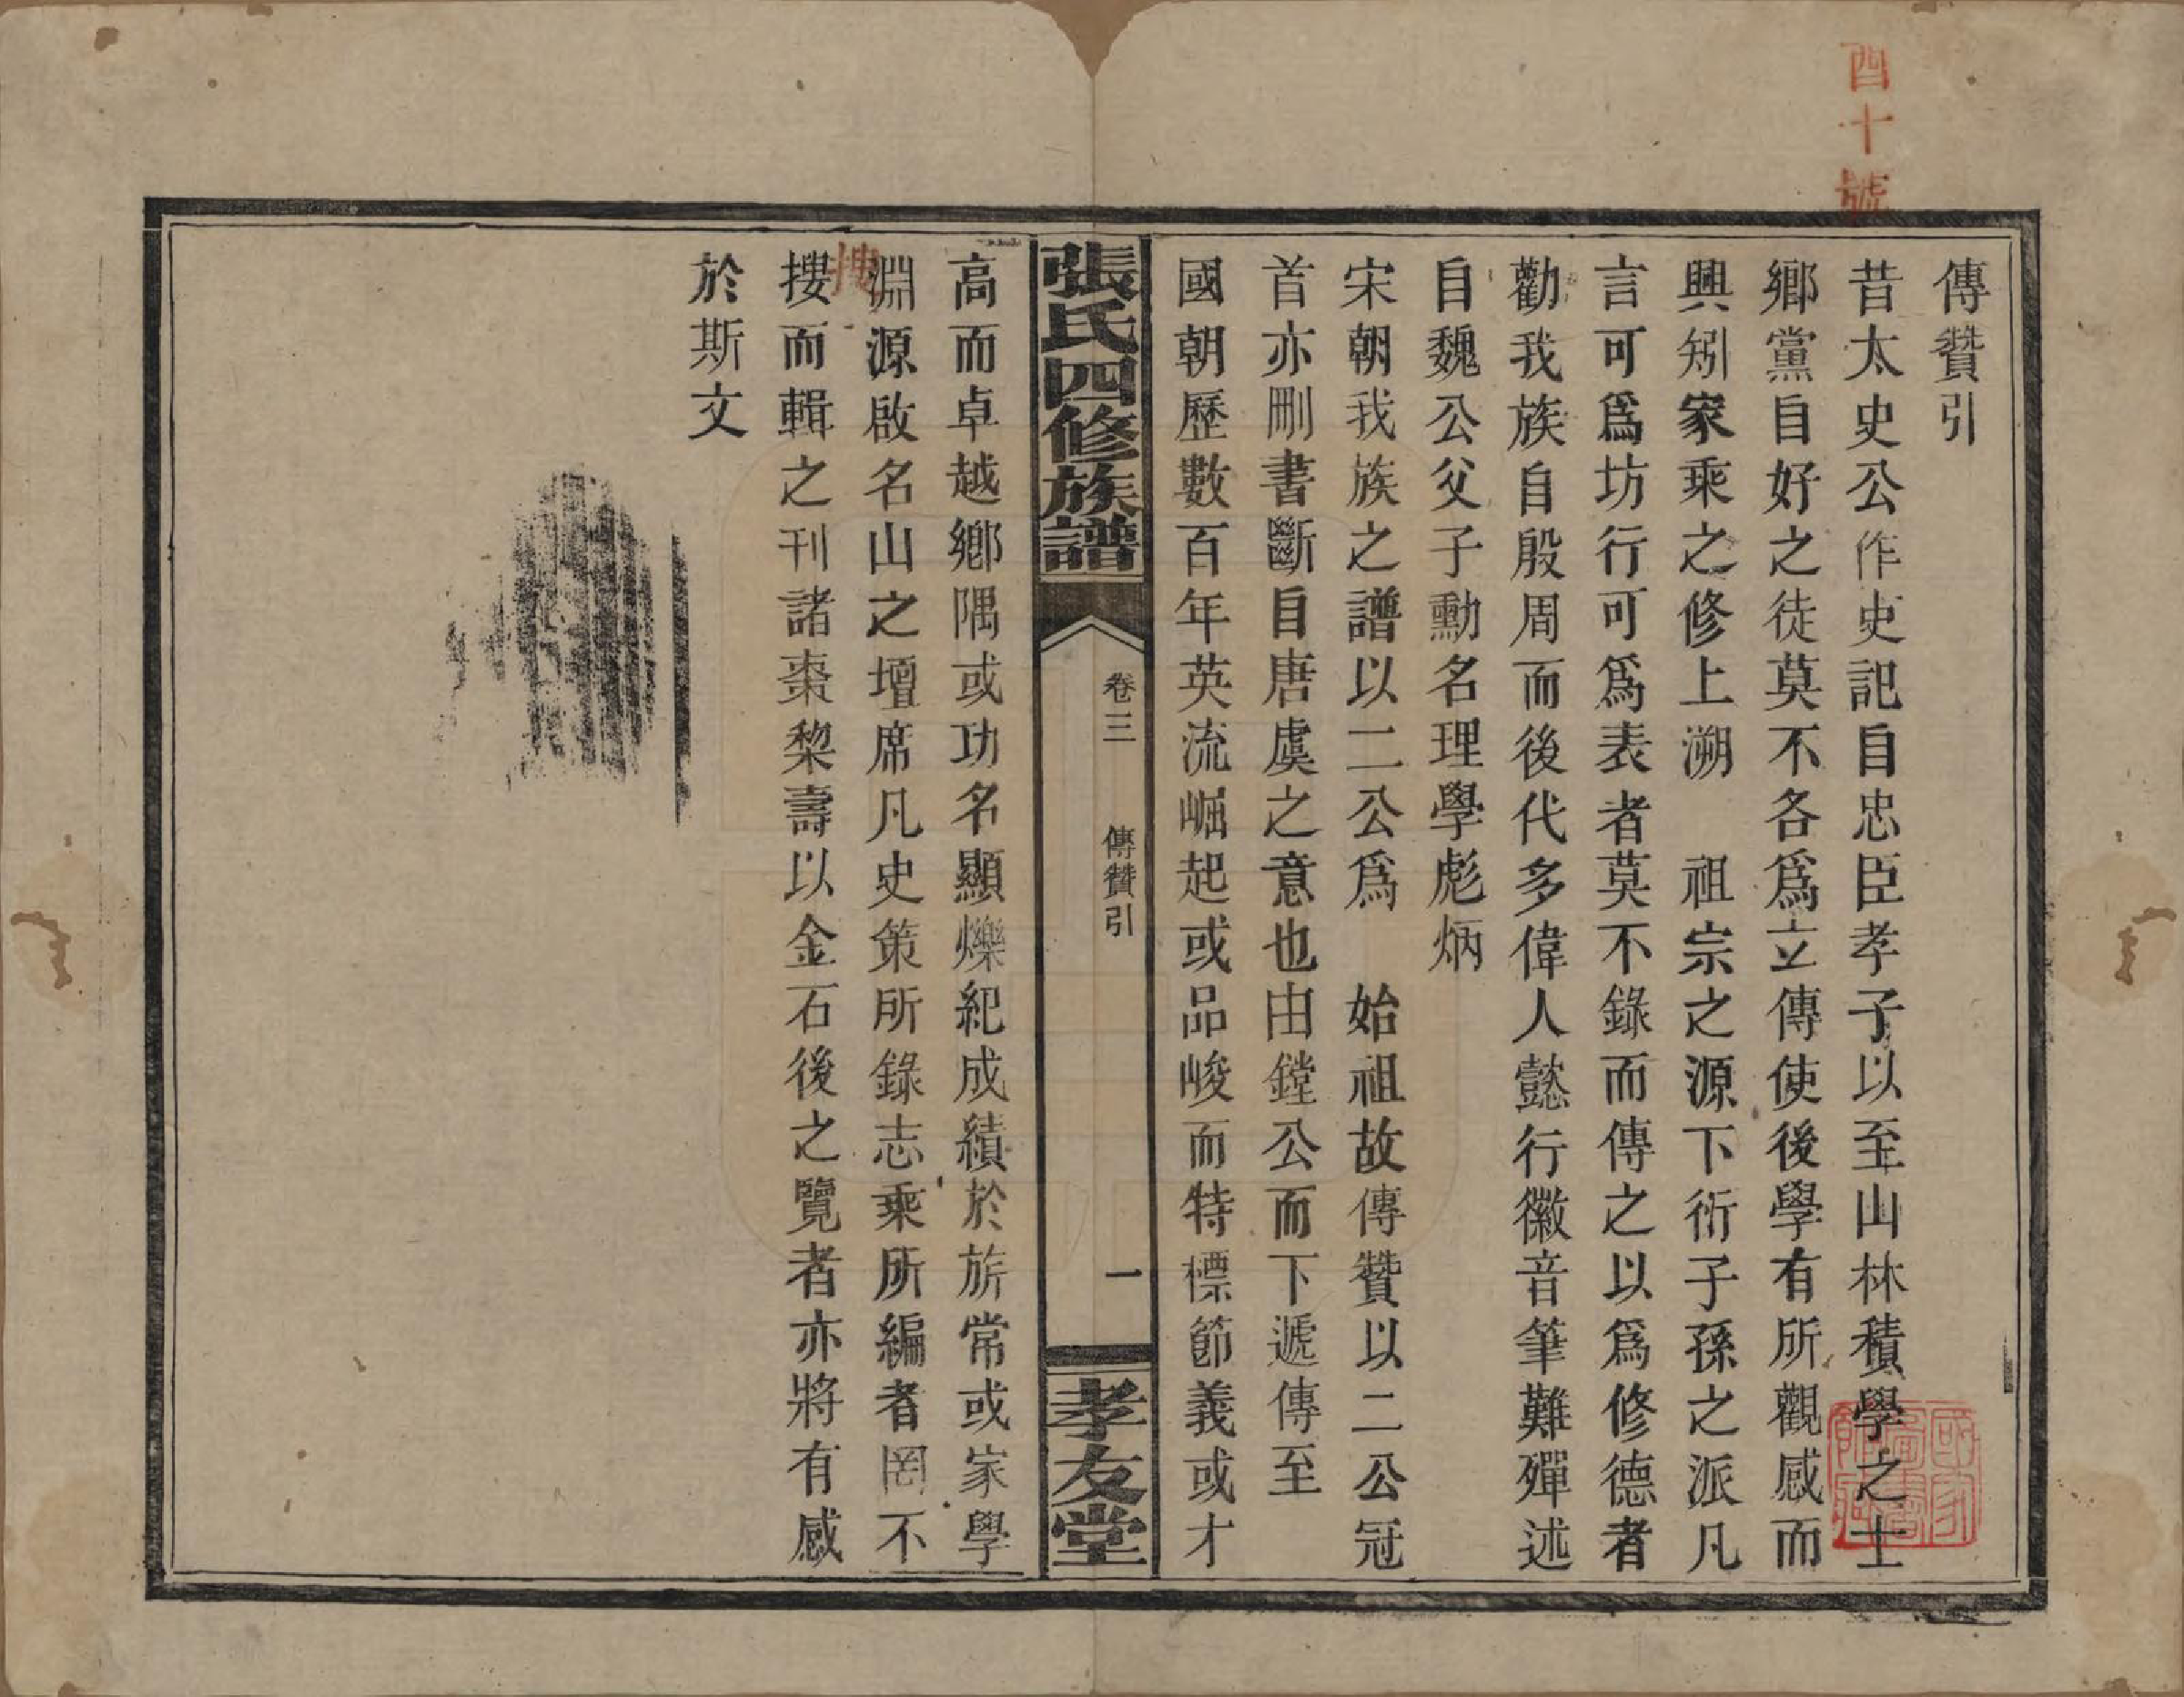 四十號
傳贊引
昔太史公作史記自忠臣孝子以至山林積學之士
鄉黨自好之徒莫不各爲立傳使後學有所觀感而
興矧家乘之修上溯　祖宗之源下衍子孫之派凡
言可爲坊行可爲表者莫不錄而傳之以爲修德者
勸我族自殷周而後代多偉人懿行徽音筆難殫述
自魏公父子勳名理學彪炳
宋朝我族之譜以二公爲　始祖故傳贊以二公冠
首亦刪書斷自唐虞之意也由鏜公而下遞傳至
國朝歷數百年英流崛起或品峻而特標節義或才
張氏四修族譜
卷三　傳贊引　一
孝友堂
高而卓越鄉隅或功名顯爍紀成績於旂常或家學
淵源啟名山之壇席凡史策所錄志乘所編者罔不
摟而輯之刊諸棗棃壽以金石後之覽者亦將有感
搜
於斯文